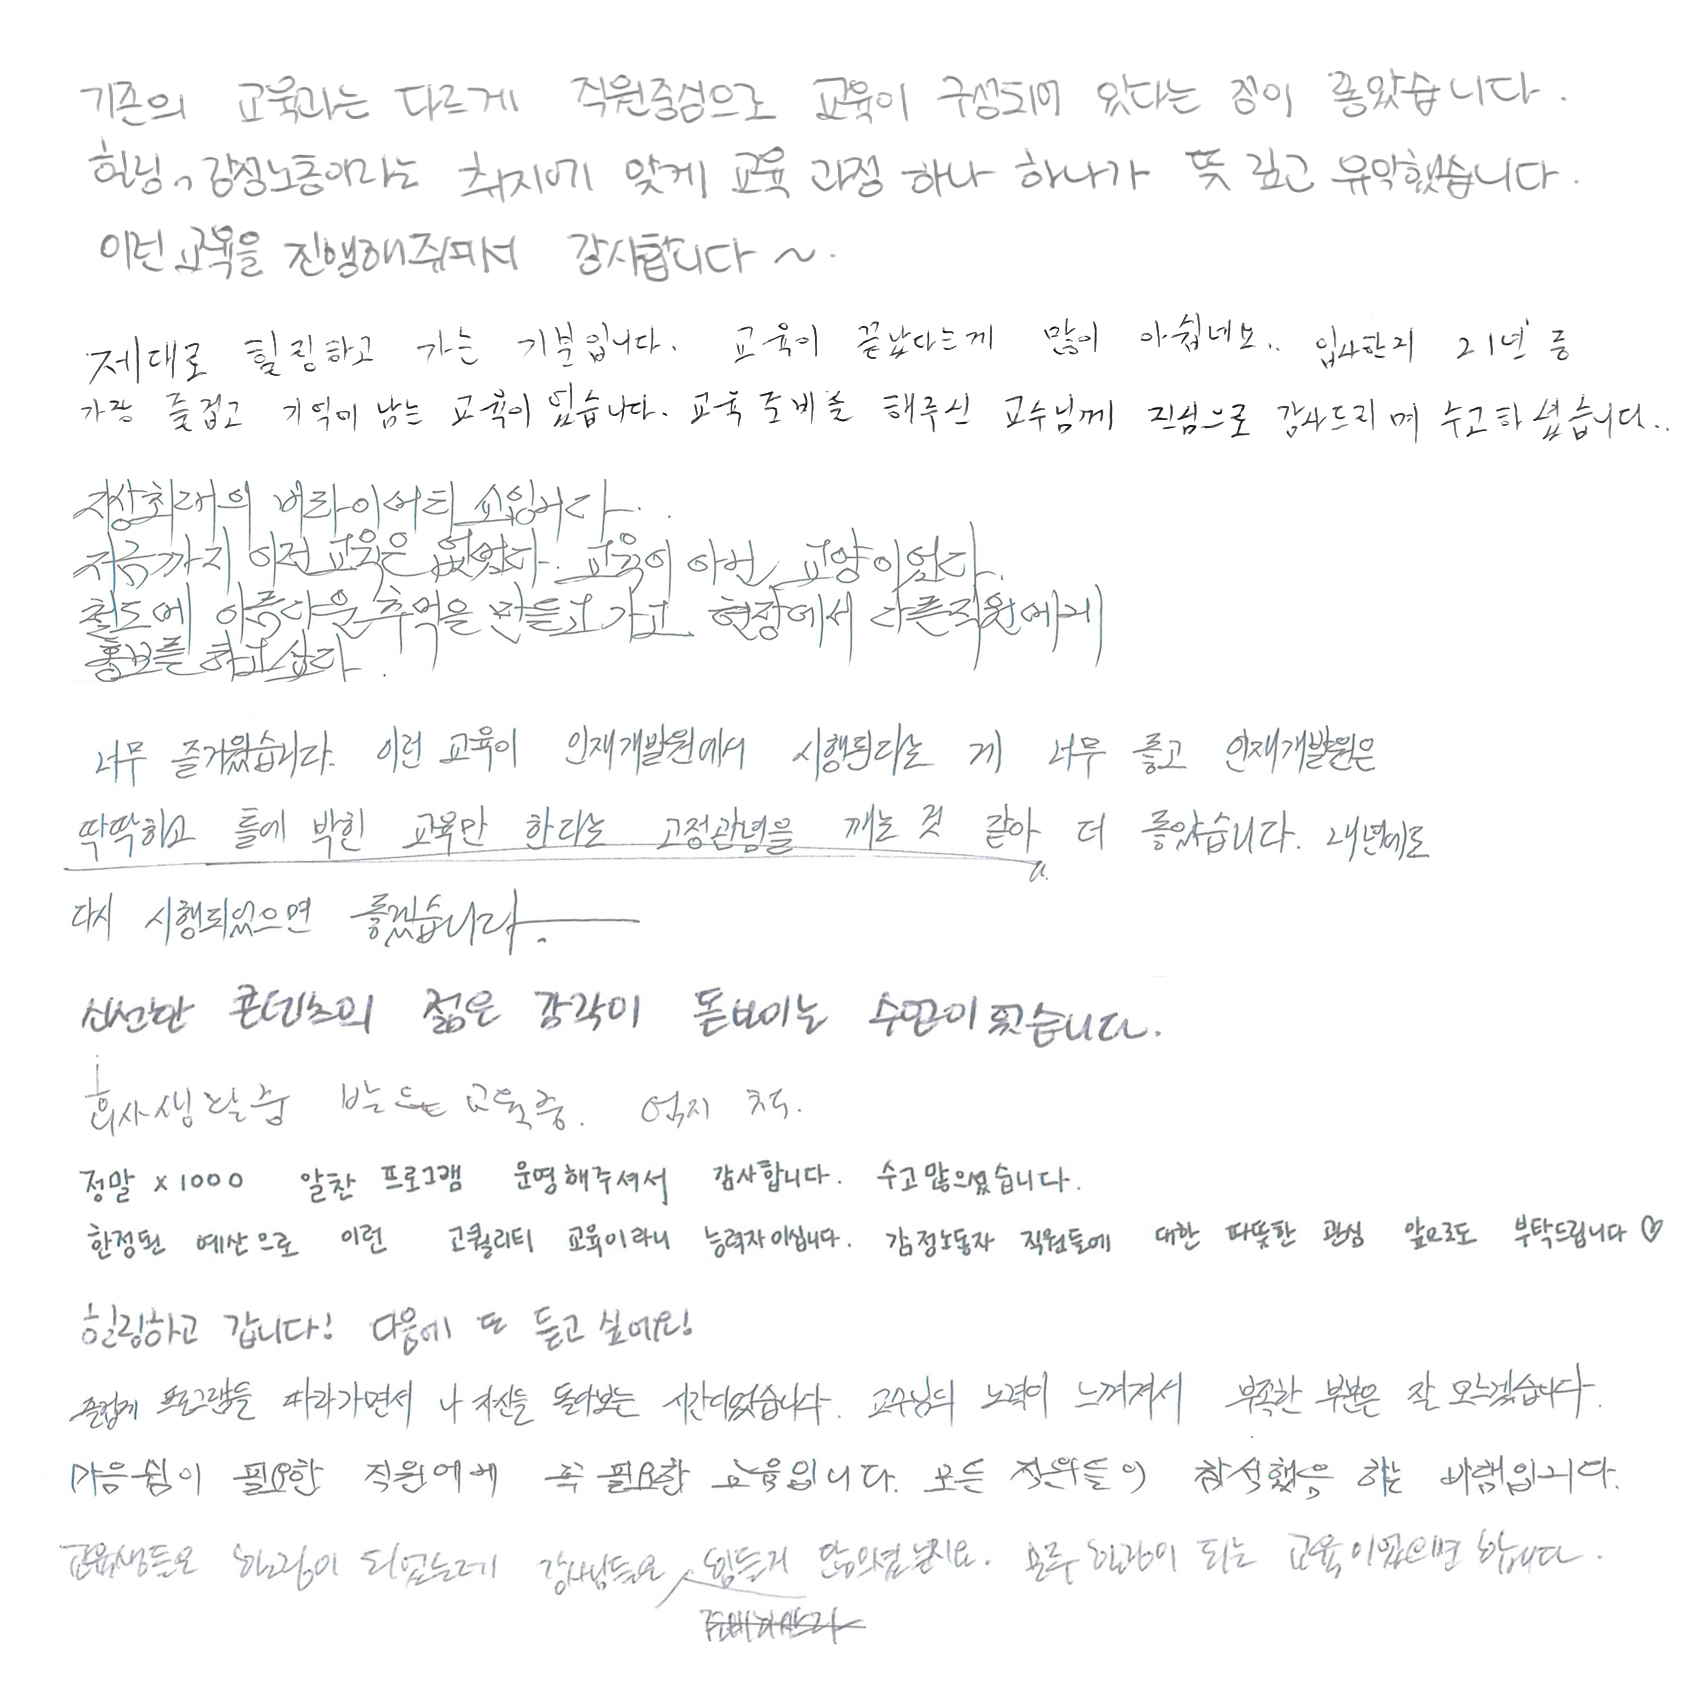 기존의 교육과는 다르게 직원중심으로 교육이 구성되어 있다는 점이 좋았습니다.
힐링, 감정노동이라는 취지에 맞게 교육 과정 하나 하나가 뜻 깊고 유익했습니다.
이런 교육을 진행해주셔서 감사합니다~.
제대로 힐링하고 가는 기분입니다. 교육이 끝났다는게 많이 아쉽네요.. 입사한지 21년 중
가장 즐겁고 기억에 남는 교육이 있습니다. 교육 준비를 해주신 교수님께 진심으로 감사드리며 수고하셨습니다..
지상최대의 버라이어티 쇼입니다.
지금까지 이런 교육은 없었다. 교육이 교양이었다.
철도에 아름다운 추억을 만들고 가고 현장에서 다른직원에게
홍보를 하고싶다.
너무 즐거웠습니다. 이런 교육이 인재개발원에서 시행된다는 게 너무 좋고 인재개발원은
딱딱하고 틀에 박힌 교육만 한다는 고정관념을 깨는 것 같아 더 좋았습니다. 내년에도
다시 시행되었으면 좋겠습니다.
신선한 콘텐츠의 젊은 감각이 돋보이는 수업이었습니다.
회사생활중 받는 교육중. 엄지 척.
정말 x1000 알찬 프로그램 운영해주셔서 감사합니다. 수고많으셨습니다.
한정된 예산으로 이런 고퀄리티 교육이라니 능력자이십니다. 감정노동자 직원들에 대한 따뜻한 관심 앞으로도 부탁드립니다♡
힐링하고 갑니다! 다음에 또 듣고 싶어요!
즐겁게 프로그램들 따라가면서 나 자신을 돌아보는 시간이었습니다. 교수님의 노력이 느껴져서 부족한 부분은 잘 모르겠습니다.
마음쉼이 필요한 직원에게 꼭 필요한 교육입니다. 모든 직원들이 참석했음 하는 바램입니다.
교육생들은 힐링이 되었는데 강사님들은 힘들지 모두 힐링이 되는 교육이었으면 합니다.